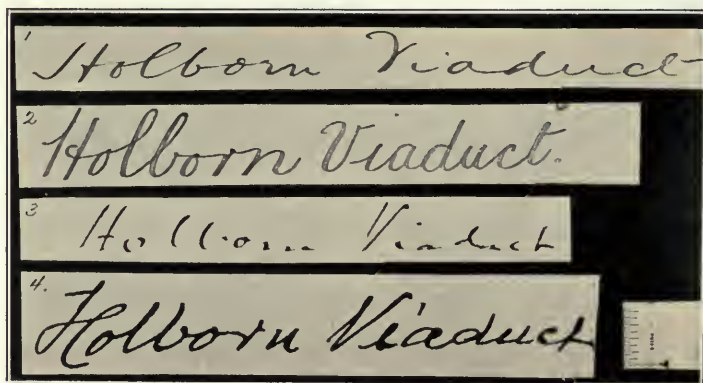 1 Holborn Viaduct
2 Holborn Viaduct.
3 Holborn Viaduct
4. Holborn Viaduct